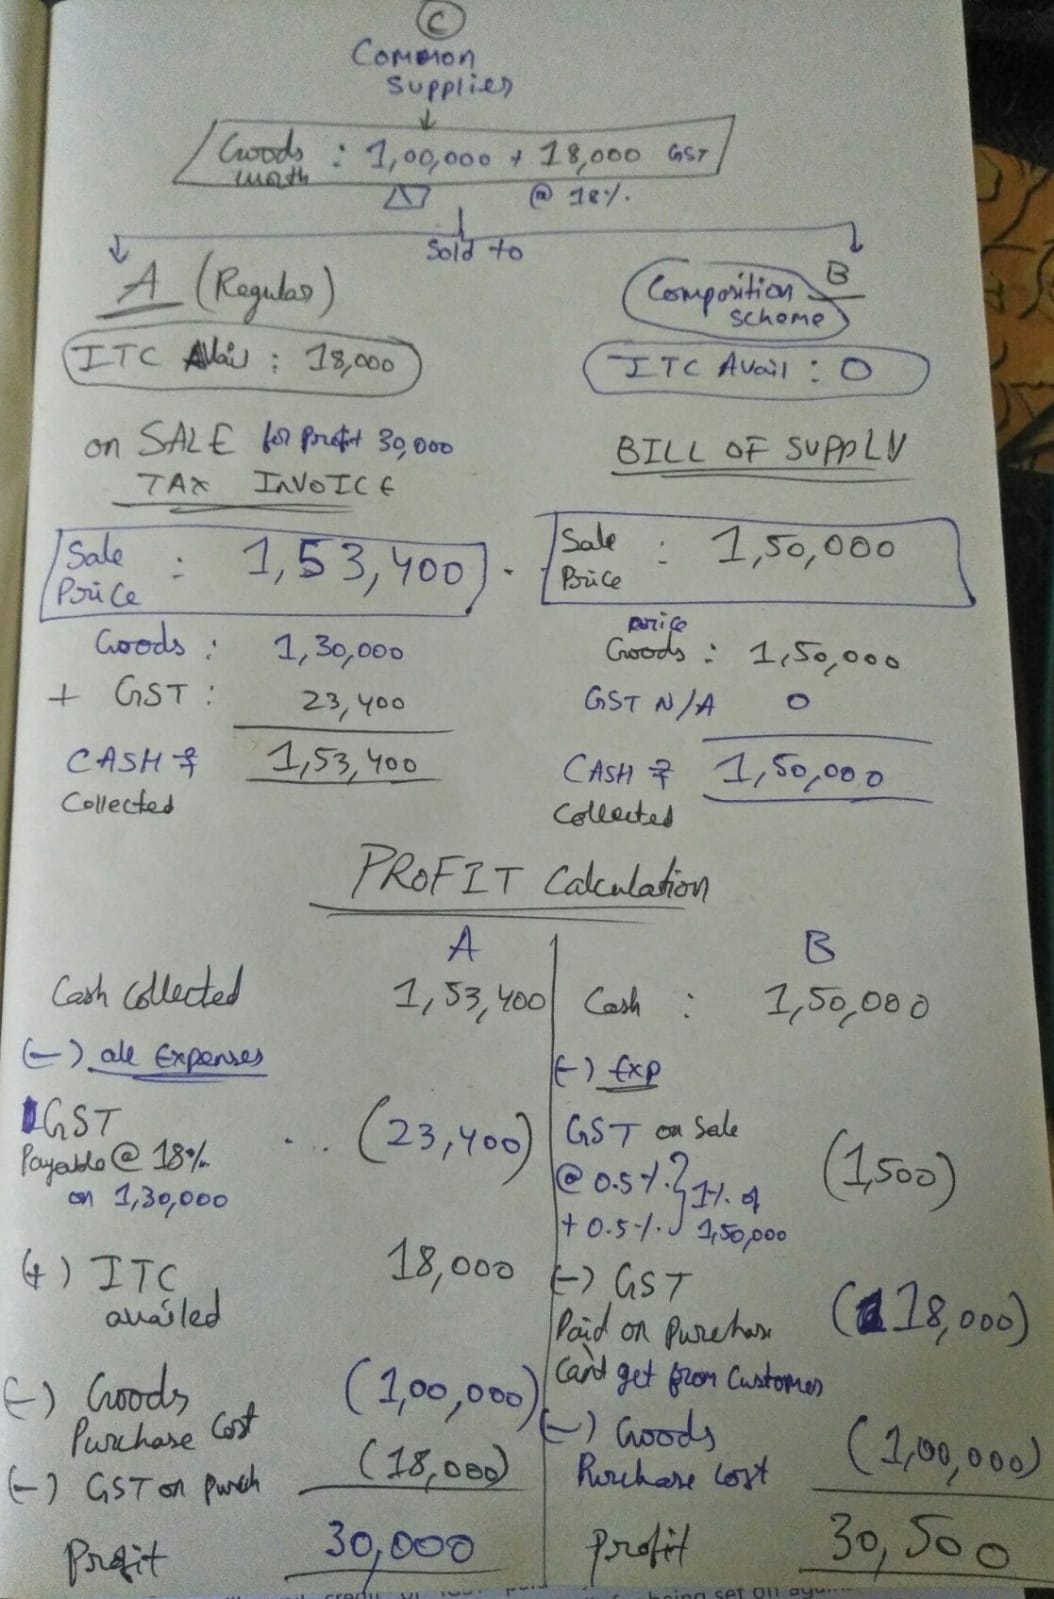 C
Common
Supplies
Goods worth : 1,00,000 + 18,000 GST
@ 18%.
Sold to
A (Regular)
ITC Avail : 18,000
on SALE for Profit 30,000
TAX INVOICE
Sale Price : 1,53,400
Goods : 1,30,000
+ GST : 23,400
CASH ₹ 1,53,400
Collected
B
Composition
scheme
ITC Avail : 0
BILL OF SUPPLY
Sale Price : 1,50,000
price
Goods : 1,50,000
GST N/A 0
CASH ₹ 1,50,000
Collected
PROFIT Calculation
A
Cash Collected 1,53,400
(-) all Expenses
GST ... (23,400)
Payable @ 18%.
on 1,30,000
(+) ITC 18,000
availed
(-) Goods (1,00,000)
Purchase Cost
(-) GST on purch (18,000)
Profit 30,000
B
Cash : 1,50,000
(-) Exp
GST on Sale (1,500)
@ 0.5%. } 1%. of
+ 0.5%. 1,50,000
(-) GST (18,000)
Paid on Purchase
Can't get from Customer
(-) Goods (1,00,000)
Purchase Cost
Profit 30,500